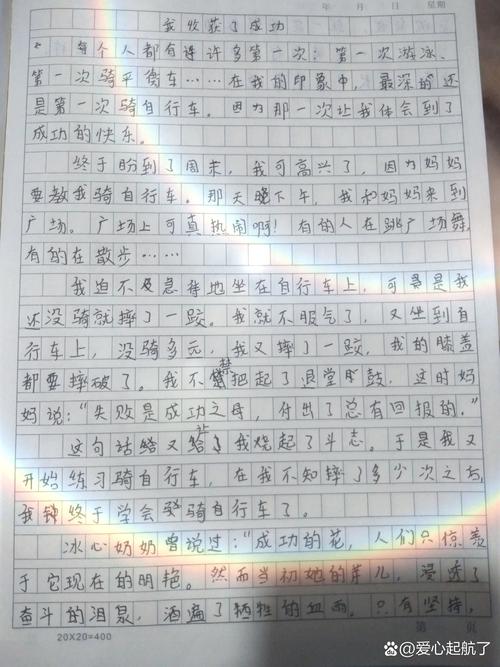 年 月 日 星期
我收获了成功
每个人都有许许多多第一次：第一次游泳、
第一次骑平衡车……在我的印象中，最深的还
是第一次骑自行车。因为那一次让我体会到了
成功的快乐。
终于盼到了周末，我可高兴了，因为妈妈
要教我骑自行车。那天晚下午，我和妈妈来到
广场。广场上可真热闹啊！有的人在跳广场舞，
有的在散步……
我迫不及急待地坐在自行车上，可是我
还没骑就摔了一跤。我就不服气了，又坐到自
行车上，没骑多元，我又摔了一跤，我的膝盖
都要摔破了。我不禁把起了退堂鼓，这时妈
妈说：“失败是成功之母，付出了总有回报的。”
这句话给又给让我燃起了斗志。于是我又
开始练习骑自行车，在我不知摔了多少次之后，
我钟终于学会骑自行车了。
冰心奶奶曾说过：“成功的花，人们只惊羡
于它现在的明艳。然而当初她的芽儿，浸透了
奋斗的泪泉，洒遍了牺牲的血雨。只有坚持，
20×20=400
第 页
爱心起航了